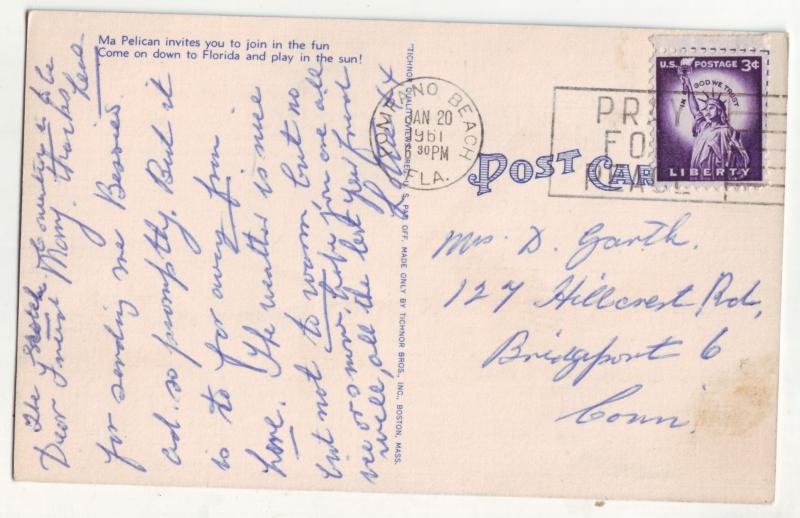 Ma Pelican invites you to join in the fun
Come on down to Florida and play in the sun!
The Scotch Country is be
Dear Friend Many thanks
for sending me Bessie's
ad. so promptly. But it
is to far away from
here. The weather is nice
but not to warm, but no
ice or snow, hope you are all
well, all the best your friend
"TICHNOR QUALITY VIEWS," REG. U. S. PAT. OFF. MADE ONLY BY TICHNOR BROS., INC., BOSTON, MASS.
POMPANO BEACH
JAN 20
1961
6 30 PM
FLA.
PRAY
FOR
PEACE
U.S. POSTAGE 3¢
IN GOD WE TRUST
LIBERTY
POST CARD
Mrs. D. Garth.
127 Hillcrest Rd,
Bridgeport 6
Conn.